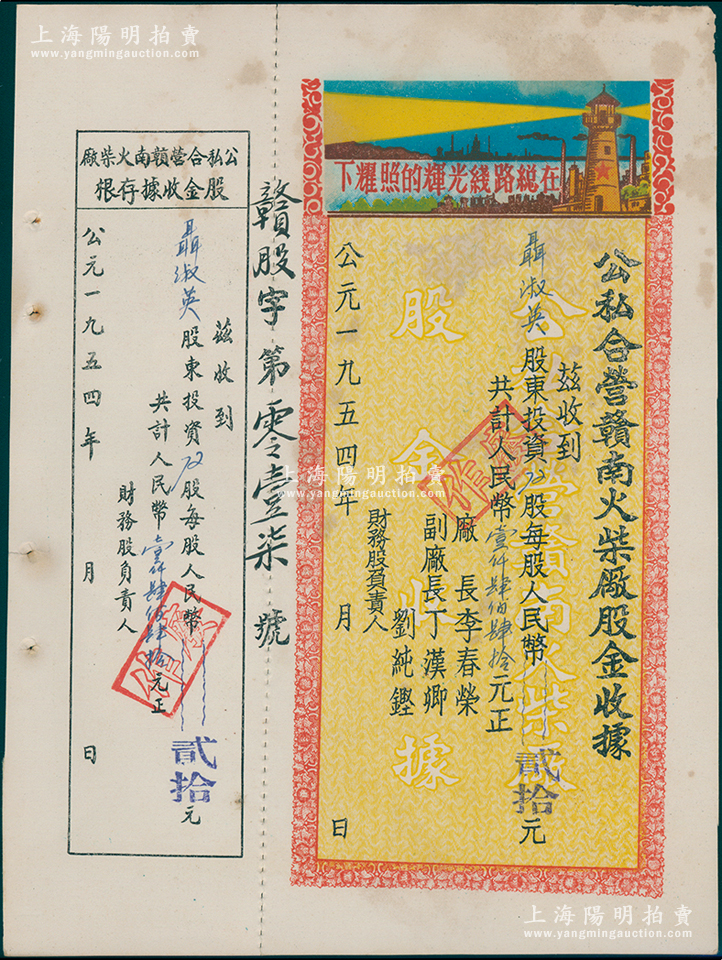 上海陽明拍賣
www.yangmingauction.com
在總路綫光輝的照耀下
公私合營贛南火柴廠股金收據
茲收到
聶淑英股東投資72股每股人民幣貳拾元
共計人民幣壹仟肆佰肆拾元正
廠長李春榮
副廠長丁漢卿
財務股負責人 劉純鏗
公元一九五四年 月 日
公私合營贛南火柴廠
股金收據
作廢
贛股字第零壹柒號
公私合營贛南火柴廠
股金收據存根
茲收到
聶淑英股東投資72股每股人民幣貳拾元
共計人民幣壹仟肆佰肆拾元正
財務股負責人
公元一九五四年 月 日
作廢
上海陽明拍賣
www.yangmingauction.com
上海陽明拍賣
www.yangmingauction.com